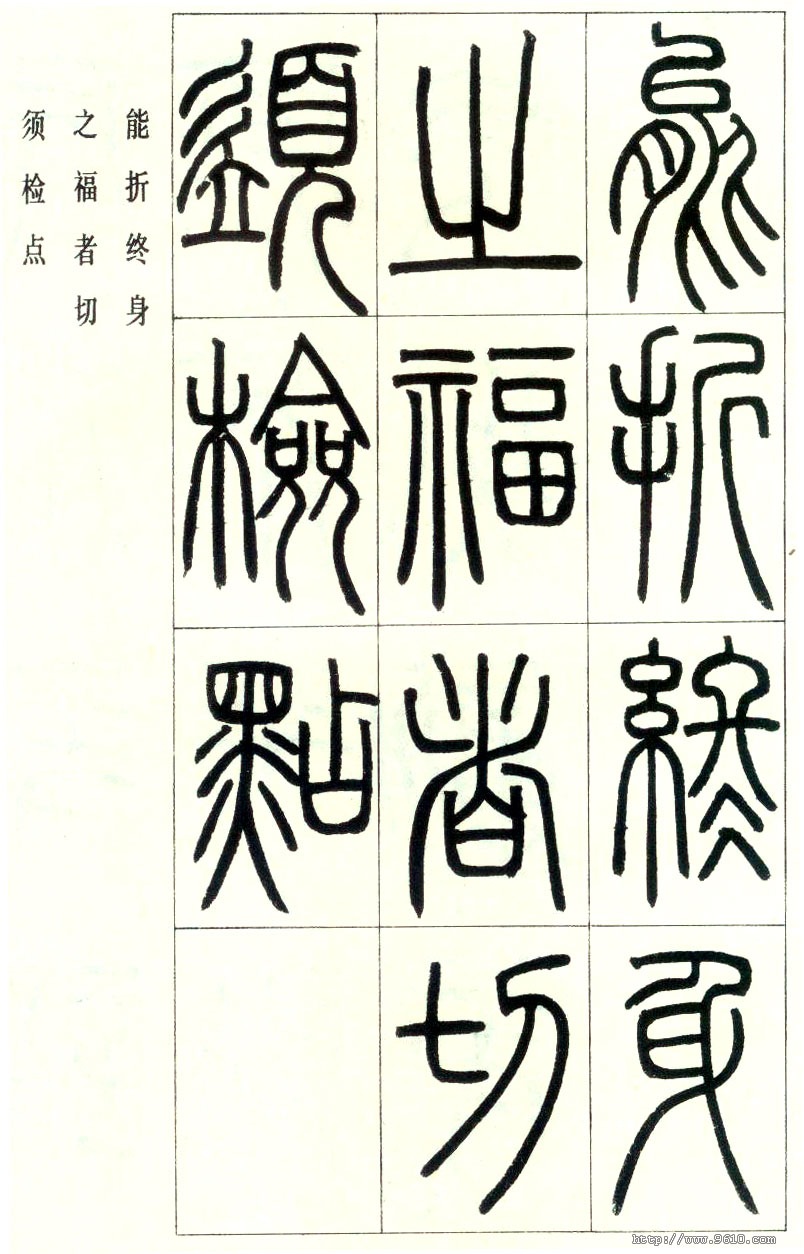 能折終身
之福者切
須檢點
能折终身
之福者切
须检点
http://www.9610.com